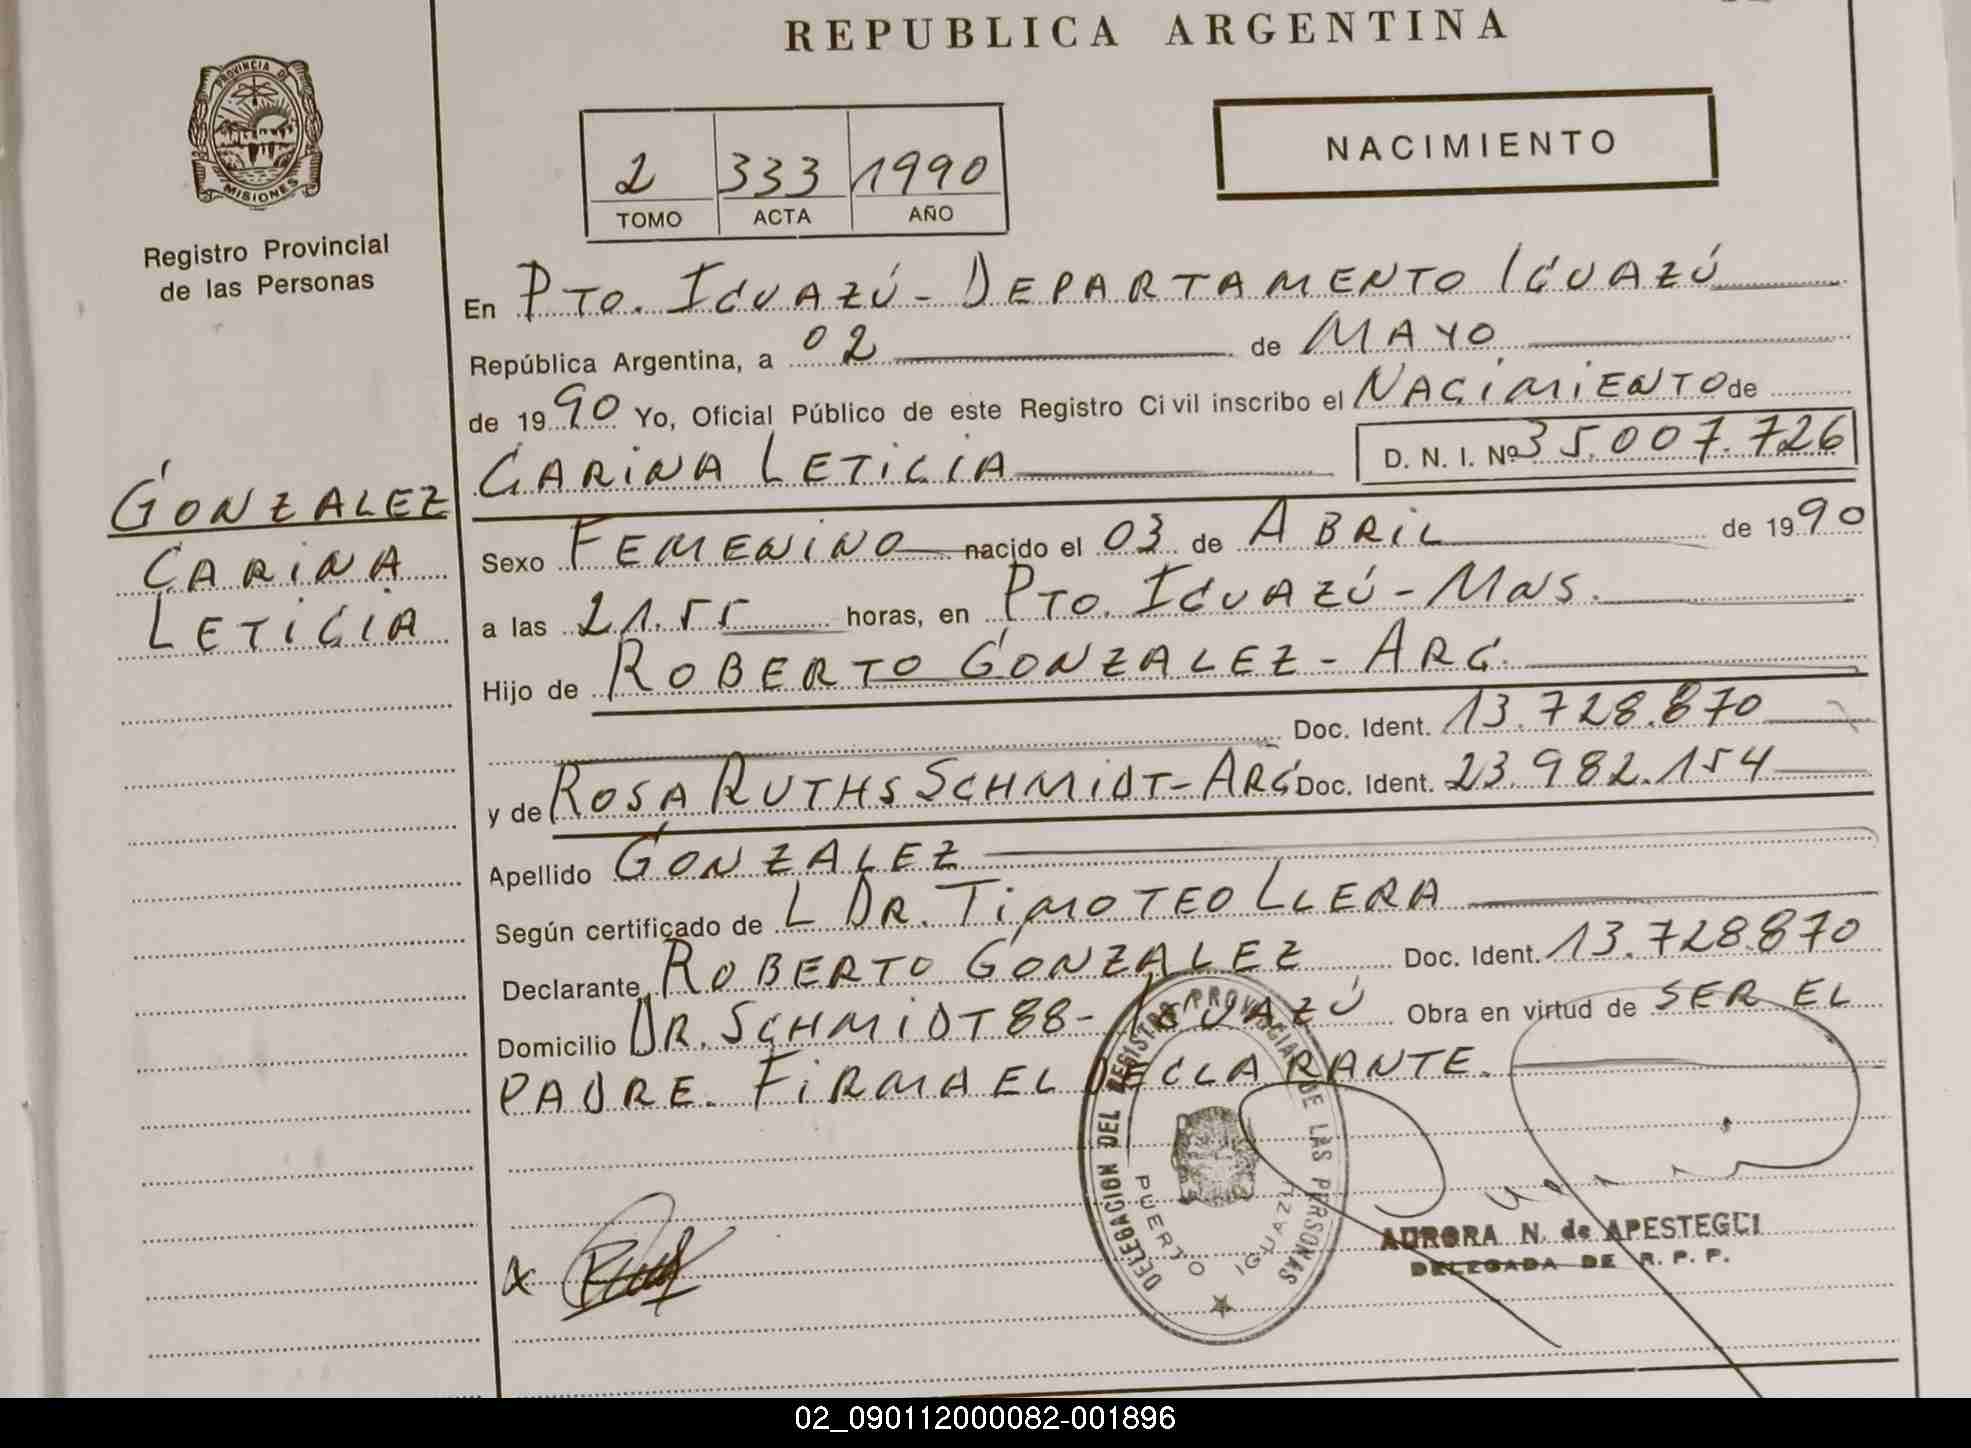 REPUBLICA ARGENTINA
PROVINCIA DE
MISIONES
Registro Provincial
de las Personas
2 333 1990
TOMO ACTA AÑO
NACIMIENTO
En PTO. IGUAZÚ - DEPARTAMENTO IGUAZÚ
República Argentina, a 02 de MAYO
de 1990 Yo, Oficial Público de este Registro Civil inscribo el NACIMIENTO de
CARINA LETICIA D. N. I. Nº 35.007.726
GONZALEZ
CARINA
LETICIA
Sexo FEMENINO nacido el 03 de ABRIL de 1990
a las 21.55 horas, en PTO. IGUAZÚ - MNS.
Hijo de ROBERTO GONZALEZ - ARG.
Doc. Ident. 13.728.870
y de ROSA RUTHS SCHMIDT - ARG Doc. Ident. 23.982.154
Apellido GONZALEZ
Según certificado de L DR. TIMOTEO LLERA
Declarante ROBERTO GONZALEZ Doc. Ident. 13.728.870
Domicilio DR. SCHMIDT 88 - IGUAZÚ Obra en virtud de SER EL
PADRE. FIRMA EL DECLARANTE.
DELEGACION DEL REGISTRO PROVINCIAL DE LAS PERSONAS
PUERTO IGUAZU
AURORA N. de APESTEGUI
DELEGADA DE R. P. P.
02_090112000082-001896